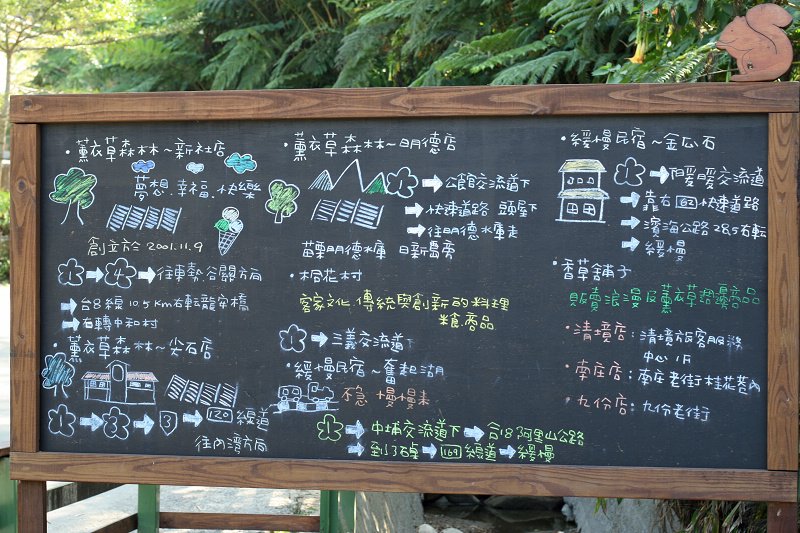 ·薰衣草森林~新社店
夢想.幸福.快樂
創立於 2001.11.9
1 → 4 → 往東勢.谷關方向
→ 台8線 10.5 Km右轉龍安橋
→ 右轉中和村
·薰衣草森林~尖石店
1 → 3 → 3 → 120 線道
往內灣方向
·薰衣草森林~明德店
1 → 公館交流道下
→ 快速道路 頭屋下
→ 往明德水庫走
苗栗明德水庫 日新島旁
·桐花村
客家文化.傳統與創新的料理
米食.商品
1 → 三義交流道下
·緩慢民宿~奮起湖
穩.慢慢來
1 → 中埔交流道下 → 台18阿里山公路
→ 到石棹 → 169 線道 → 緩慢
·緩慢民宿~金瓜石
1 → 八暖暖交流道
→ 靠右 62 快速道路
→ 濱海公路 285右轉
→ 緩慢
·香草舖子
販賣浪漫及薰衣草週邊商品
·清境店：清境旅客服務
中心 1F
·南庄店：南庄老街桂花巷內
·九份店：九份老街